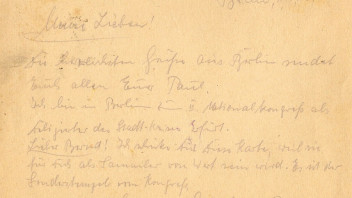 Berlin,
Meine Lieben!
Die herzlichsten Grüße aus Berlin sendet
Euch allen Euer Paul.
Ich bin in Berlin zum Nationalkongreß als
der Stadt Erfurt.
Lieber Ich schicke Dir diese Karte, weil sie
für Dich als Sammler von Wert sein wird. Es ist der
Sonderstempel vom Kongreß.